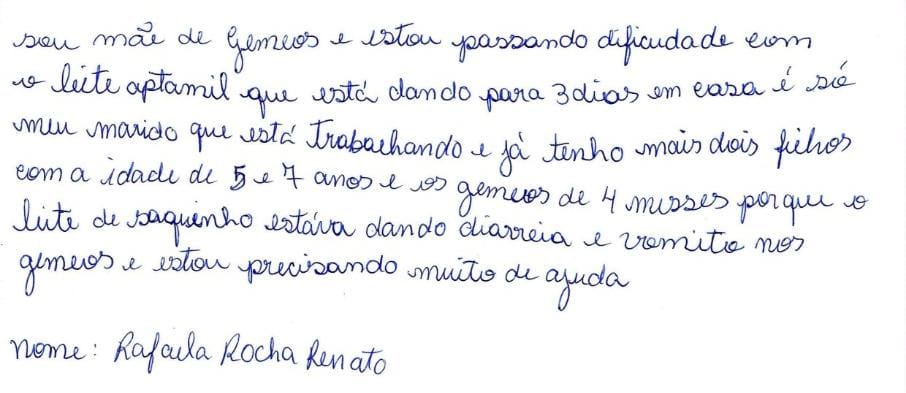 sou mãe de Gemeos e estou passando dificudade com
o leite aptamil que está dando para 3 dias em casa é só
meu marido que está Trabachando e já tenho mais dois filhos
com a idade de 5 e 7 anos e os gemeos de 4 messes porque o
leite de saquinho estáva dando diarreia e vomito nos
gemeos e estou precisando muito de ajuda
nome: Rafaela Rocha Renato